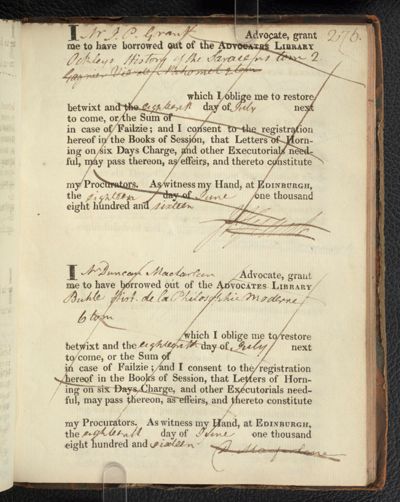 I Mr J. P. Grant Advocate, grant 276.
me to have borrowed out of the ADVOCATES LIBRARY
Ockleys History of the Saracens tom 2
Gagnier Vie de Mahomet 2 tom
which I oblige me to restore
betwixt and the eighteenth day of July next
to come, or the Sum of
in case of Failzie; and I consent to the registration
hereof in the Books of Session, that Letters of Horn-
ing on six Days Charge, and other Executorials need-
ful, may pass thereon, as effeirs, and thereto constitute
my Procurators. As witness my Hand, at EDINBURGH,
the eighteen day of June one thousand
eight hundred and sixteen
I Mr Duncan Macfarlan Advocate, grant
me to have borrowed out of the ADVOCATES LIBRARY
Buhle Hist. de la Philosophie moderne
6 tom
which I oblige me to restore
betwixt and the eighteenth day of July next
to come, or the Sum of
in case of Failzie; and I consent to the registration
hereof in the Books of Session, that Letters of Horn-
ing on six Days Charge, and other Executorials need-
ful, may pass thereon, as effeirs, and thereto constitute
my Procurators. As witness my Hand, at EDINBURGH,
the eighteenth day of June one thousand
eight hundred and sixteen
D Macfarlane